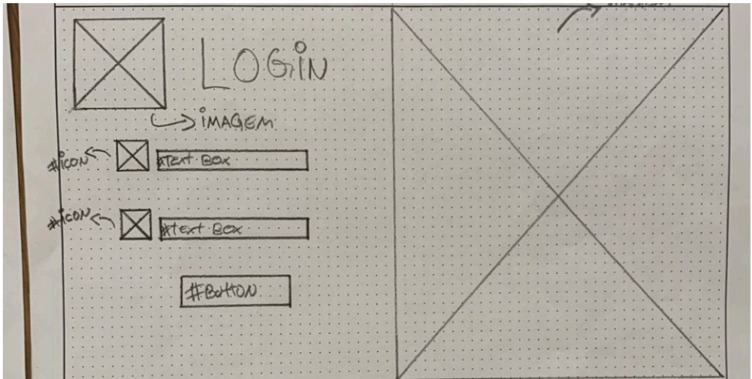 LOGiN
iMAGEM
#icoN
#Text Box
#icoN
#text Box
#ButtoN